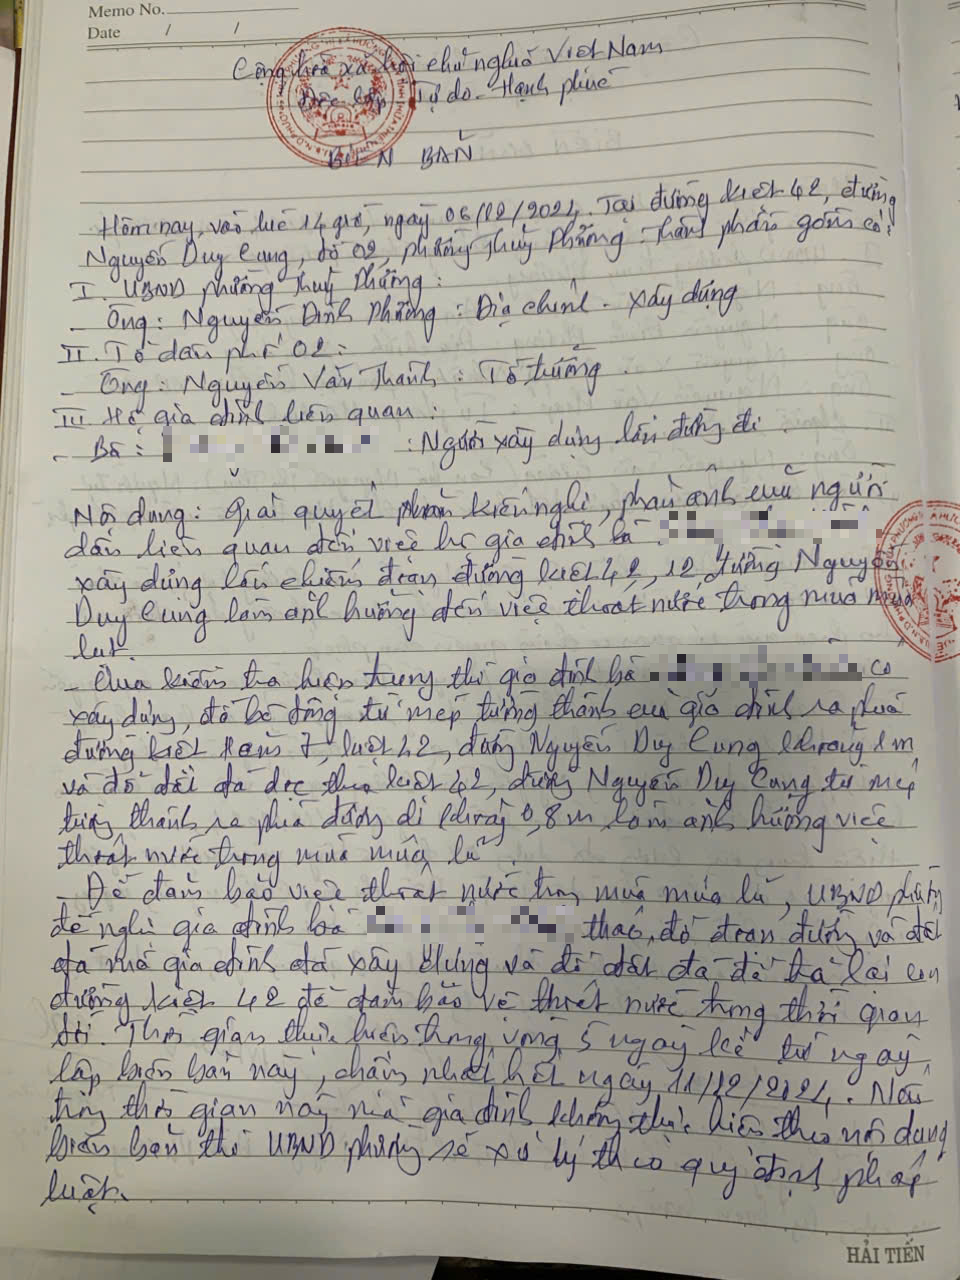 Memo No.
Date / /
Cộng hoà xã hội chủ nghĩa Việt Nam
Độc lập Tự do - Hạnh phúc
BIÊN BẢN
Hôm nay, vào lúc 14 giờ, ngày 06/12/2024. Tại đường kiệt 42, đường
Nguyễn Duy Cung, tổ 02, phường Thuỷ Phương. Thành phần gồm có:
I. UBND phường Thuỷ Phương:
- Ông: Nguyễn Đình Phương: Địa chính - Xây dựng
II. Tổ dân phố 02:
- Ông: Nguyễn Văn Thành: Tổ trưởng.
III. Hộ gia đình liên quan:
- Bà: : Người xây dựng lấn đường đi.
Nội dung: Giải quyết phản kiến nghị, phản ánh của người
dân liên quan đến việc hộ gia đình bà
xây dựng lấn chiếm đoạn đường kiệt 42, 12 đường Nguyễn
Duy Cung làm ảnh hưởng đến việc thoát nước trong mùa mưa
lụt.
- Qua kiểm tra hiện trạng thì gia đình bà có
xây dựng, đổ bê tông từ mép tường thành của gia đình ra phía
đường kiệt 7, kiệt 42, đường Nguyễn Duy Cung khoảng 1m
và đổ đất đá dọc theo kiệt 42, đường Nguyễn Duy Cung từ mép
tường thành ra phía đường đi khoảng 0,8m làm ảnh hưởng việc
thoát nước trong mùa mưa lũ.
- Để đảm bảo việc thoát nước trong mùa mưa lũ, UBND phường
đề nghị gia đình bà tháo, dỡ đoạn đường và đất
đá mà gia đình đã xây dựng và đổ đất đá để trả lại con
đường kiệt 42 để đảm bảo về thoát nước trong thời gian
tới. Thời gian thực hiện trong vòng 5 ngày kể từ ngày
lập biên bản này, chậm nhất hết ngày 11/12/2024. Nếu
trong thời gian này mà gia đình không thực hiện theo nội dung
biên bản thì UBND phường sẽ xử lý theo quy định pháp
luật.
HẢI TIẾN